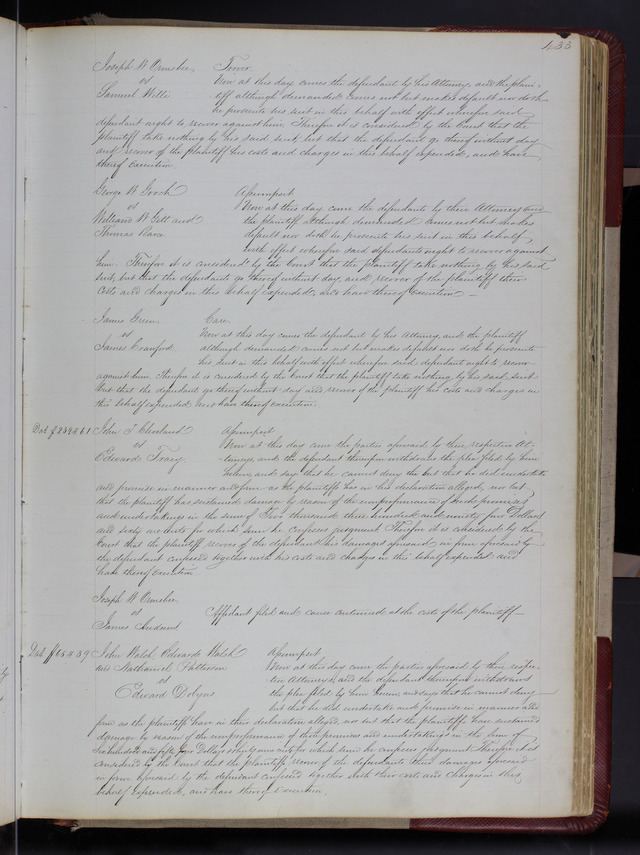 433
Joseph W Ormsbee Trover
vs Now at this day comes the defendant by his Attorney, and the plain-
Samuel Wells tiff although demanded comes not but makes default nor doth
he prosecute his suit in this behalf with effect wherefore said
defendant ought to recover against him. Therefore it is considered by the Court that the
plaintiff take nothing by his said suit, but that the defendant go thereof without day
and recover of the plaintiff his costs and charges in this behalf expended, and have
thereof execution
George W Gooch Assumpsit
vs Now at this day came the defendants by their Attorney and
William W Gitt and the plaintiff although demanded comes not but makes
Thomas default nor doth he prosecute his suit in this behalf
with effect wherefore said defendants ought to recover against
him. Therefore it is considered by the Court that the plaintiff take nothing by his said
suit, but that the defendants go thereof without day, and recover of the plaintiff their
costs and charges in this behalf expended, and have thereof execution —
James Green Case
vs Now at this day comes the defendant by his Attorney, and the plaintiff
James Crawford although demanded comes not but makes default nor doth he prosecute
his suit in this behalf with effect wherefore said defendant ought to recover
against him. Therefore it is considered by the Court that the plaintiff take nothing by his said suit
but that the defendant go thereof without day and recover of the plaintiff his costs and charges in
this behalf expended and have thereof execution.
John T Cleveland Assumpsit
vs Now at this day come the parties aforesaid by their respective At-
Edward Tracy torneys, and the defendant thereupon withdraws the plea filed by him
herein, and says that he cannot deny the but that he did undertake
and promise in manner and form as the plaintiff has in his declaration alleged, nor but
that the plaintiff has sustained damage by reason of the nonperformance of said promises
and undertakings in the sum of Two thousand three hundred and ninety four Dollars
and sixty one cents for which sum he confesses judgment Therefore it is considered by the
Court that the plaintiff recover of the defendant his damages aforesaid in form aforesaid by
the defendant confessed together with his costs and charges in this behalf expended and
have thereof execution
Joseph W Ormsbee
vs Affidavit filed and cause continued at the costs of the plaintiff —
James
John Walsh Edward Walsh Assumpsit
and Nathaniel Patterson Now at this day come the parties aforesaid by their respec-
vs tive Attorneys, and the defendant thereupon withdraws
Edward Dobyns the plea filed by him herein, and says that he cannot deny
but that he did undertake and promise in manner and
form as the plaintiffs have in their declaration alleged, nor but that the plaintiffs have sustained
damage by reason of the nonperformance of their promises and undertakings in the sum of
Six hundred and fifty four Dollars cents for which sum he confesses judgment Therefore it is
considered by the Court that the plaintiffs recover of the defendants their damages aforesaid
in form aforesaid by the defendant confessed together with their costs and charges in this
behalf expended, and have thereof execution.